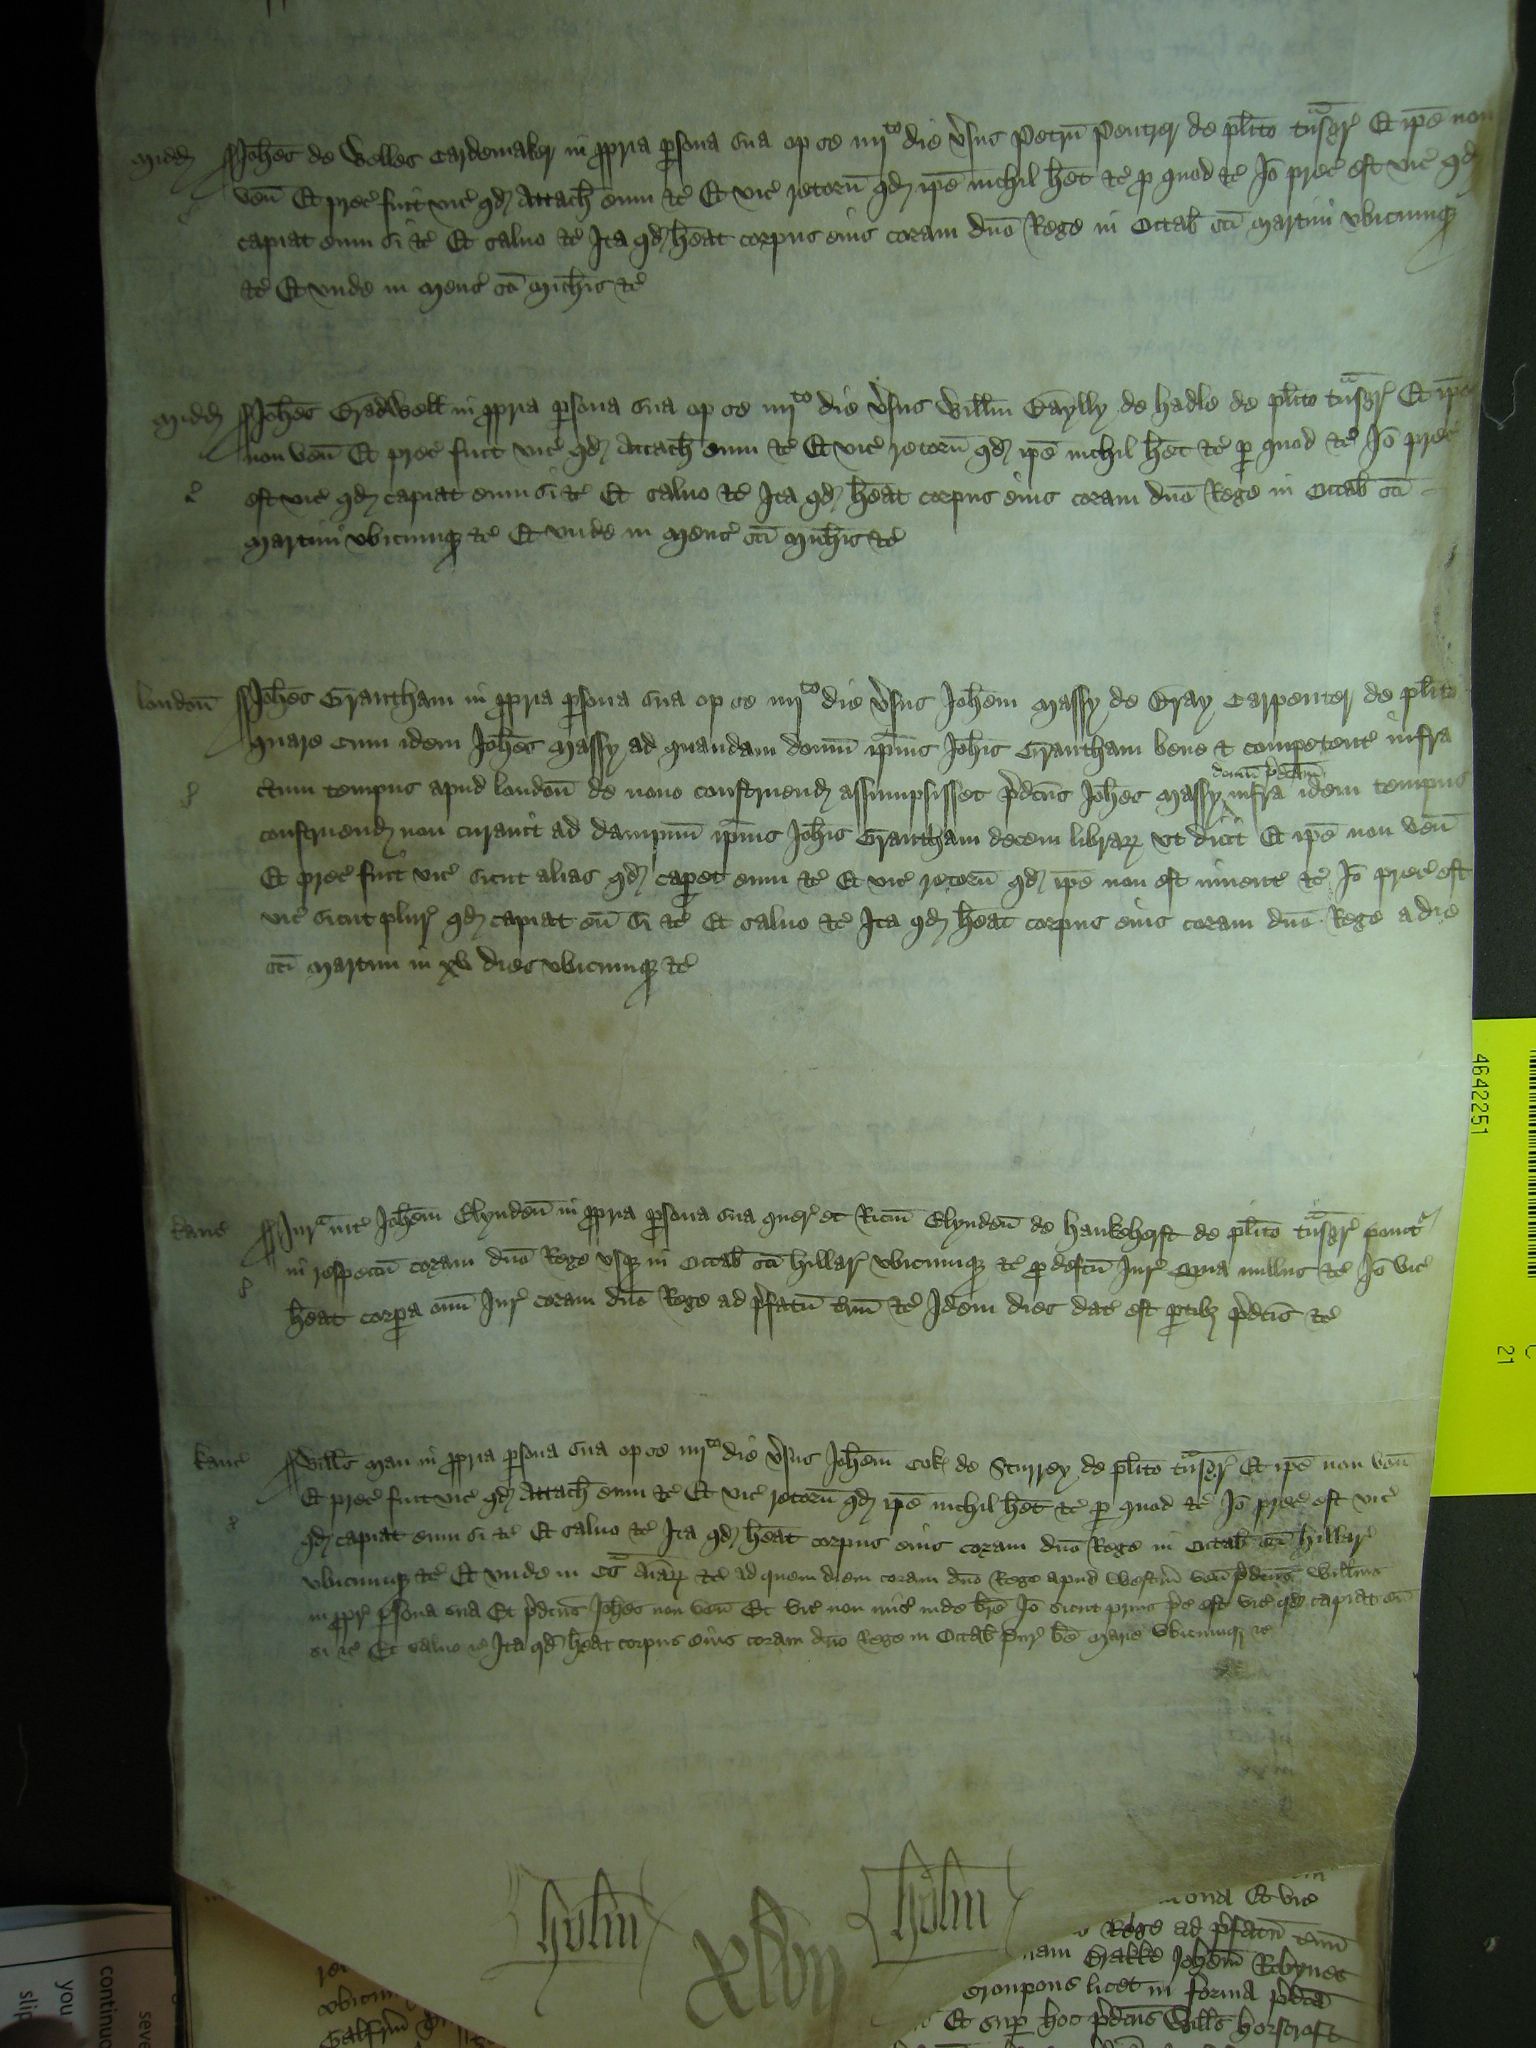 Midd Joh̄es de Welles Cardemaker in p̱pria p̱sona sua op se iiijto die v̓sus Petrū Pentrer de pl̄ito tᵃnsgr̄ Et ip̄e non
ven̄ Et prec̓ fuit vic̓ qd̓ Attach̄ eum ⁊c̓ Et vic̓ retorn̄ qd̓ ip̄e nichil h̄et ⁊c̓ p̱ quod ⁊c̓ Jō prec̓ est vic̓ qd̓
capiat eum si ⁊c̓ Et saluo ⁊c̓ Ita qd̓ h̄eat corpus eius coram dn̄o Rege in Octab̄ sc̄i Martini vbicumq̢
⁊c̓ Et vnde in Mens̓ sc̄i Mich̄is ⁊c̓
Midd Joh̄es Gradwell in p̱pria p̱sona sua op se iiijto die v̓sus Will̄m Baylly de Hadle de pl̄ito tᵃnsgr̄ Et ip̄e
non ven̄ Et prec̓ fuit vic̓ qd̓ Attach̄ eum ⁊c̓ Et vic̓ retorn̄ qd̓ ip̄e nichil h̄et ⁊c̓ p̱ quod ⁊c̓ Jō prec̓
est vic̓ qd̓ capiat eum si ⁊c̓ Et saluo ⁊c̓ Ita qd̓ h̄eat corpus eius coram dn̄o Rege in Octab̄ sc̄i
Martini vbicumq̢ ⁊c̓ Et vnde in Mens̓ sc̄i Mich̄is ⁊c̓
london̄ Joh̄es Grantham in p̱pria p̱sona sua op se iiijto die v̓sus Joh̄em Massy de Bray Carpenter de pl̄ito
quare cum idem Joh̄es Massy ad quandam domū ip̄ius Joh̄is Grantham bene ⁊ competent̓ infra
c̓tum tempus apud london̄ de nouo construend̓ assumpsisset p̓dc̄us Joh̄es Massy domū p̓dc̄am infra idem tempus
construend̓ non curauit ad dampnū ip̄ius Joh̄is Grantham decem librar̄ vt dicit Et ip̄e non ven̄
Et prec̓ fuit vic̓ sicut alias qd̓ cap̱et eum ⁊c̓ Et vic̓ retorn̄ qd̓ ip̄e non est inuent̓ ⁊c̓ Jō prec̓ est
vic̓ sicut plur̓ qd̓ capiat eū si ⁊c̓ Et saluo ⁊c̓ Ita qd̓ h̄eat corpus eius coram dn̄o Rege a die
sc̄i Martini in xv dies vbicumq̢ ⁊c̓
kanc̓ Jurᵃ int̓ Joh̄em Elynden̄ in p̱pria p̱sona sua quer̓ et Ric̄m Elynden̄ de Haukeherst de pl̄ito tᵃnsgr̄ ponitᵘʳ
in respectū coram dn̄o Rege vsq̢ in Octab̄ sc̄i Hillar̓ vbicumq̢ ⁊c̓ p̱ defc̄u Jur̓ Quia nullus ⁊c̓ Jō vic̓
h̄eat corp̱a om̄i Jur̓ coram dn̄o Rege ad p̓fatū t̓mū ⁊c̓ Idem dies dat̓ est p̱tib̢ p̓dc̄is ⁊c̓
kanc̓ Will̄s Man in p̱pria p̱sona sua op se iiijto die v̓sus Joh̄em Cok̓ de Sturrey de pl̄ito tᵃnsgr̄ Et ip̄e non ven̄
Et prec̓ fuit vic̓ qd̓ Attach̄ eum ⁊c̓ Et vic̓ retorn̄ qd̓ ip̄e nichil h̄et ⁊c̓ p̱ quod ⁊c̓ Jō prec̓ est vic̓
qd̓ capiat eum si ⁊c̓ Et saluo ⁊c̓ Ita qd̓ h̄eat corpus eius coram dn̄o Rege in Octab̄ sc̄i Hillar̓
vbicumq̢ ⁊c̓ Et vnde in Cᵃs Aīar̄ ⁊c̓ ad quem diem coram dn̄o Rege apud Westm̄ ven̄ p̓dc̄us Will̄mus
in p̱pr̓ p̱sona sua Et p̓dc̄us Joh̄es non ven̄ Et vic̓ non mis̓ inde br̄e Jō sicut prius p̓c̓ est vic̓ qd̓ capiat eū
si ⁊c̓ Et saluo ⁊c̓ Ita qd̓ h̄eat corpus eius coram dn̄o Rege in Octab̄ Pur̓ b̄e Marie vbicumq̢ ⁊c̓
Holm xlviij Holm
Et vic̓
Rege ad p̓fatū t̓mū
Joh̄em Robynet
licet in forma p̓dc̄a
Et sup̱ hoc p̓dc̄us Will̄s Horscroft
4642251
21
seve
continuo
you
slip